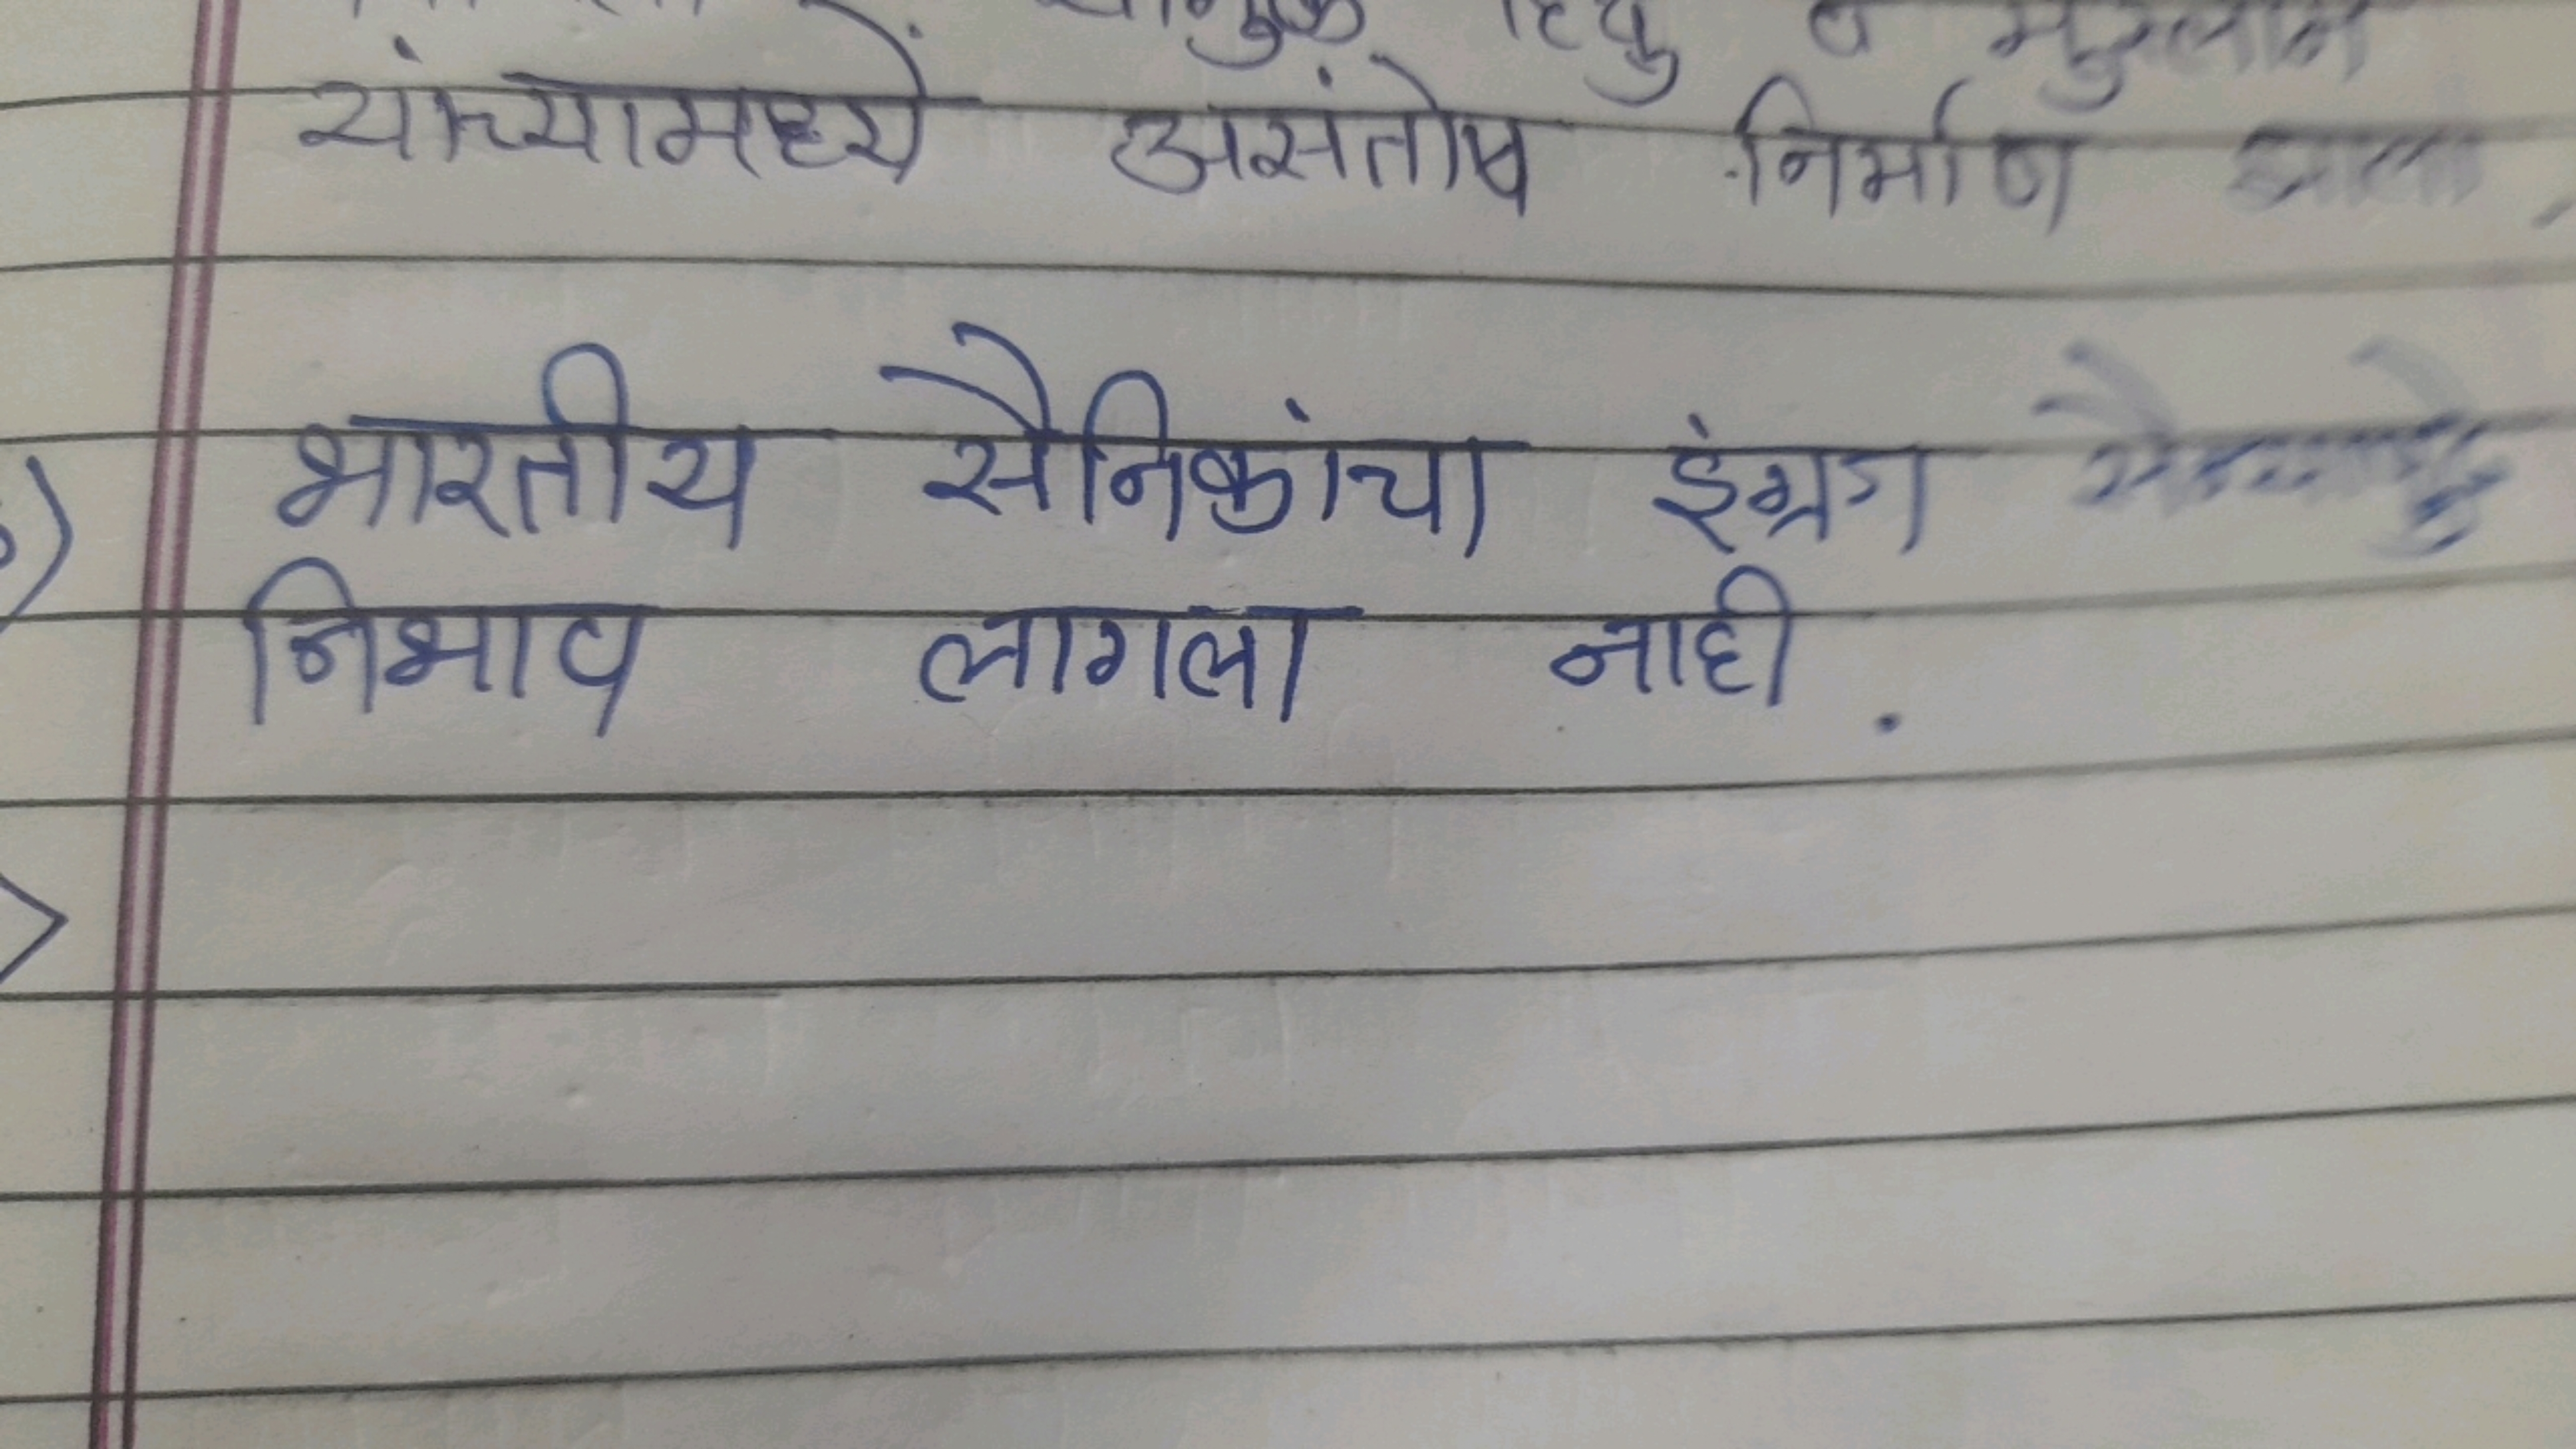 हिंदु व मुस्लीम
यांच्यामध्ये असंतोष निर्माण झाला.
भारतीय सैनिकांचा इंग्रज
निभाव लागला नाही.